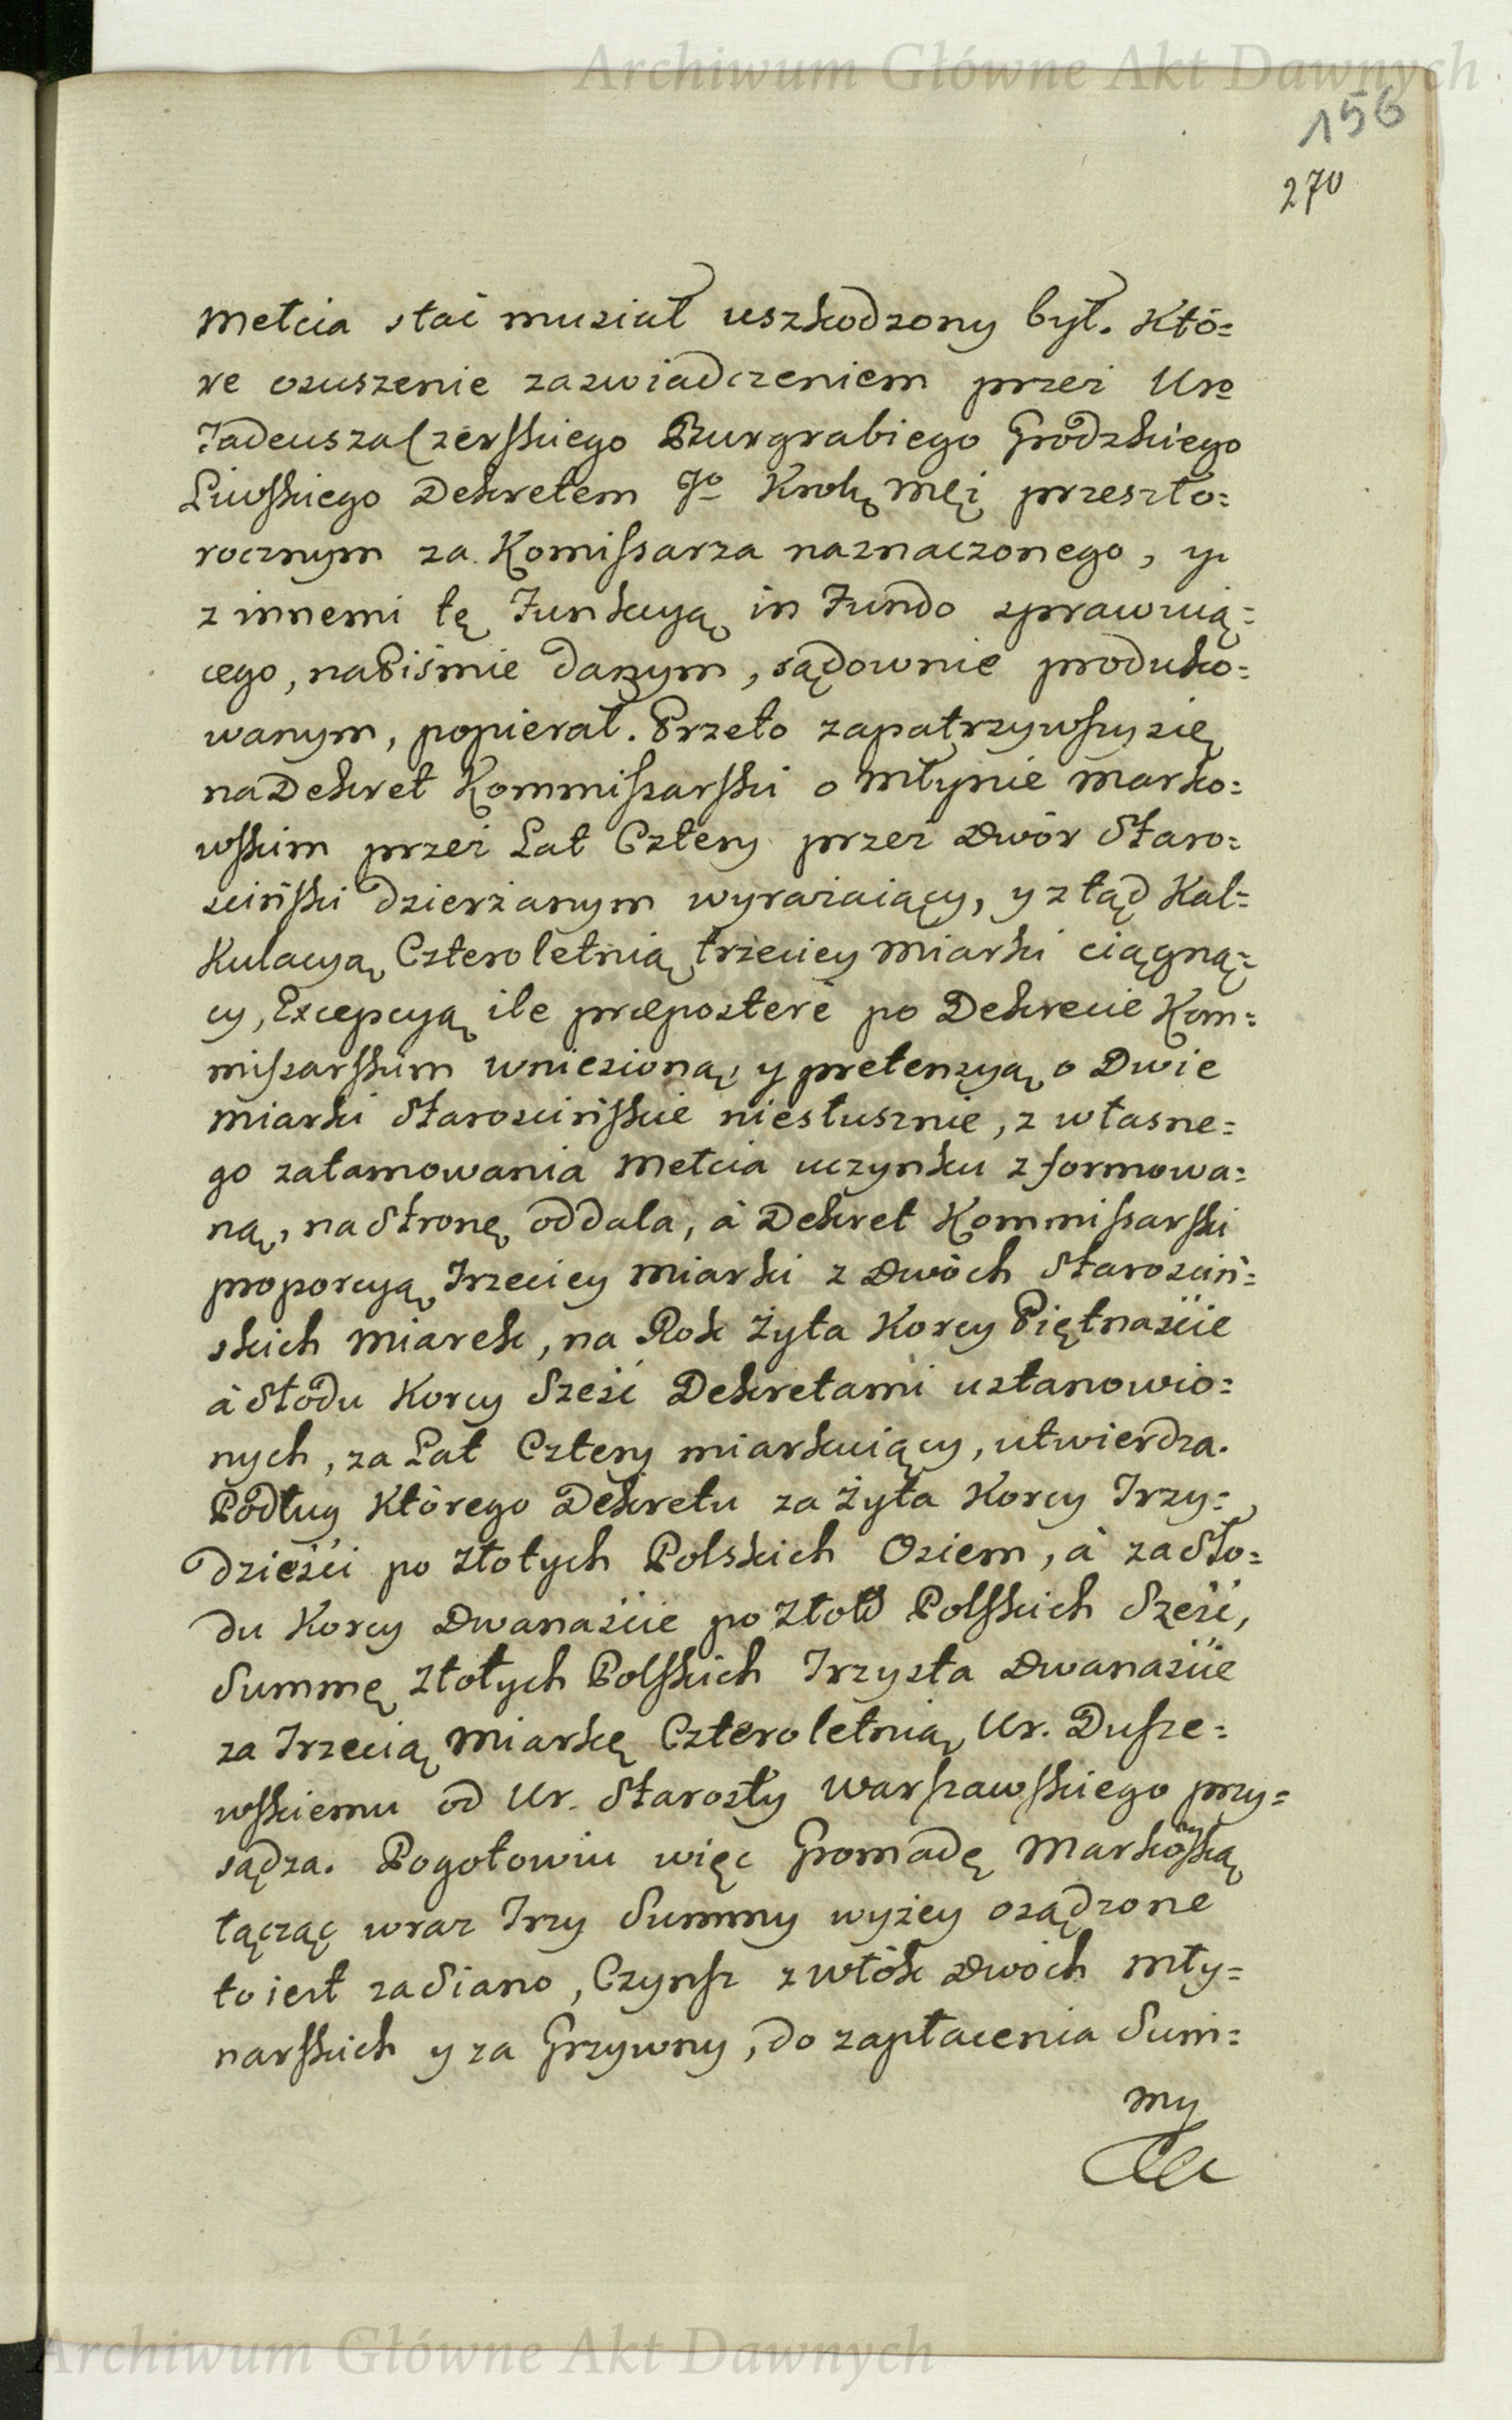 Archiwum Główne Akt Dawnych
156
270
Mełcia stać musiał uszkodzony był. Któ=
re osuszenie zaswiadczeniem przez Uro
Tadeusza Czerskiego Burgrabiego Grodzkiego
Liwskiego Dekretem Jo Krolę Mći przeszło=
rocznym za Komissarza naznaczonego, y
z innemi tę Funkcyą in Fundo sprawuią=
cego, na Piśmie danym, sądownie produko=
wanym, popierał. Przeto zapatrzywszy się
na Dekret Kommissarski o Młynie Marko=
wskim przez Lat Cztery przez Dwór Staro=
sciński dzierżanym wyrażaiący, y ztąd Kal=
kulacyą Czteroletnią trzeciey Miarki ciągną=
cy, Excepcyą ile præpostere po Dekrecie Kom=
missarskim wniesioną, y pretensyą o Dwie
Miarki Staroscińskie niesłusznie, z własne=
go zatamowania Mełcia uczynku zformowa=
ną, na Stronę oddala, à Dekret Kommissarski
proporcyą Trzeciey Miarki z Dwóch Starosciń=
skich Miarek, na Rok Żyta Korcy Piętnaście
à Słodu Korcy Sześć Dekretami ustanowio=
nych, za Lat Cztery miarkuiący, utwierdza.
Podług Którego Dekretu za Żyta Korcy Trzy=
dzieści po Złotych Polskich Osiem, à za Sło=
du Korcy Dwanaście po Złotч Polskich Sześć,
Summę Złotych Polskich Trzysta Dwanaście
za Trzecią Miarkę Czteroletnią Ur. Dusze=
wskiemu od Ur. Starosty Warszawskiego przy=
sądza. Pogotowiu więc Gromadę Markowską
łącząc wraz Trzy Summy wyżey osądzone
to iest za Siano, Czynsz z włók Dwóch Mły=
narskich y za Grzywny, do zapłacenia Sum=
my
Archiwum Główne Akt Dawnych